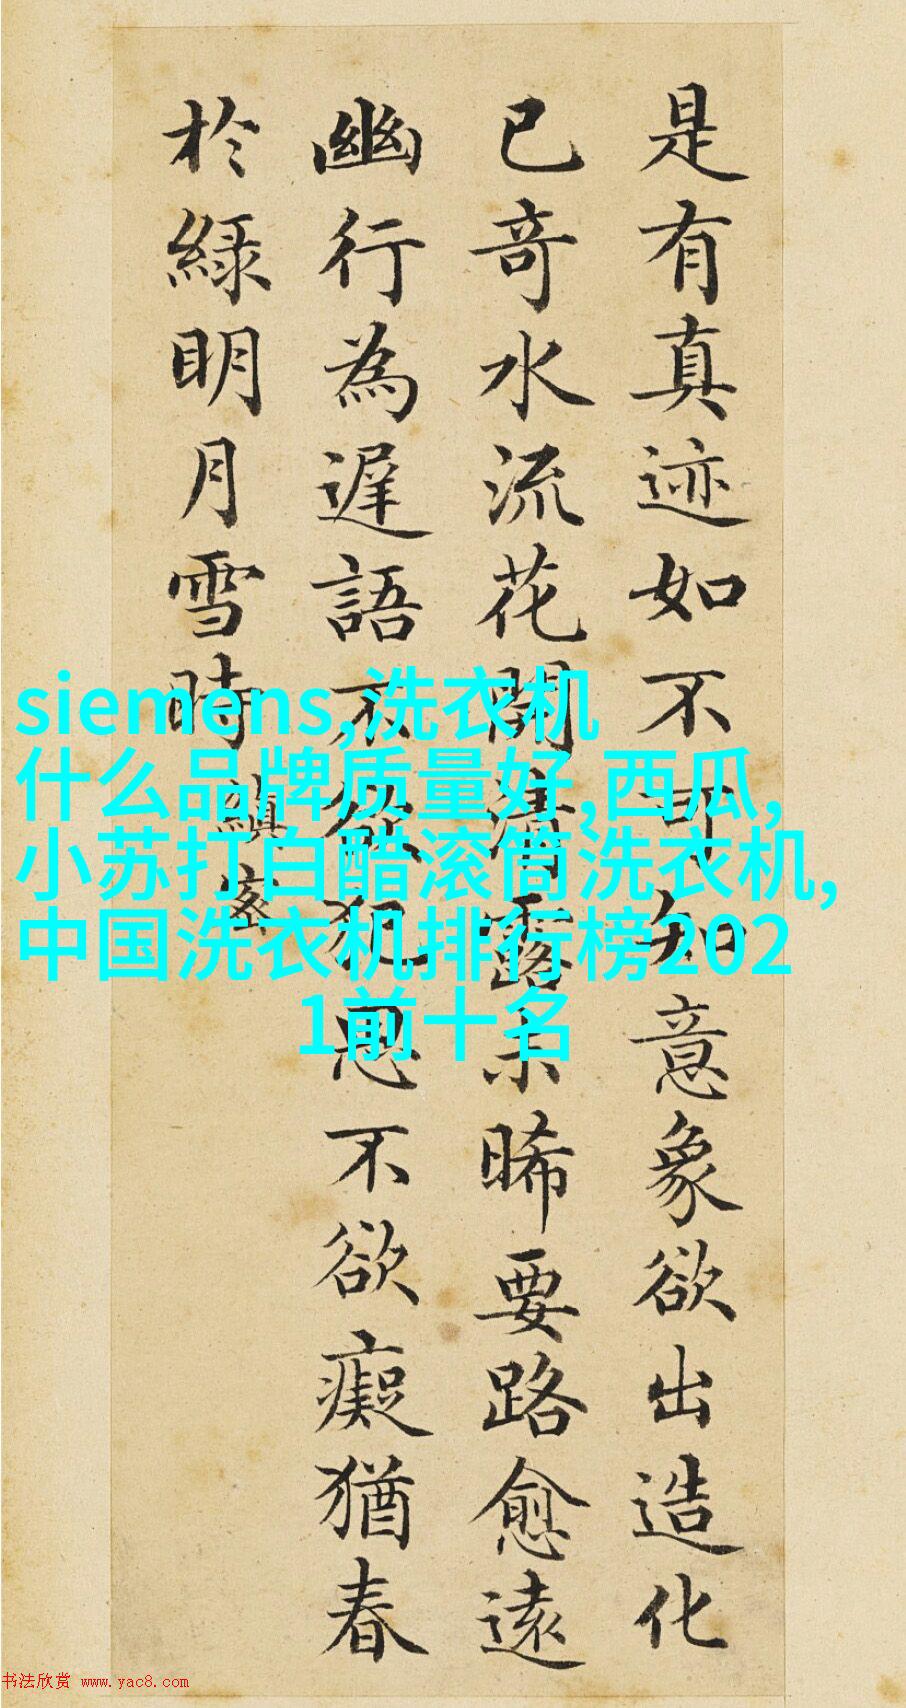 是有真迹如不可知意象欲出造化
已奇水流花開清露未晞要路愈遠
幽行為遲語不欲犯思不欲癡猶春
於綠明月雪時
縝密
siemens,洗衣机
什么品牌质量好,西瓜,
小苏打白醋滚筒洗衣机,
中国洗衣机排行榜202
1前十名
书法欣赏 www.yac8.com